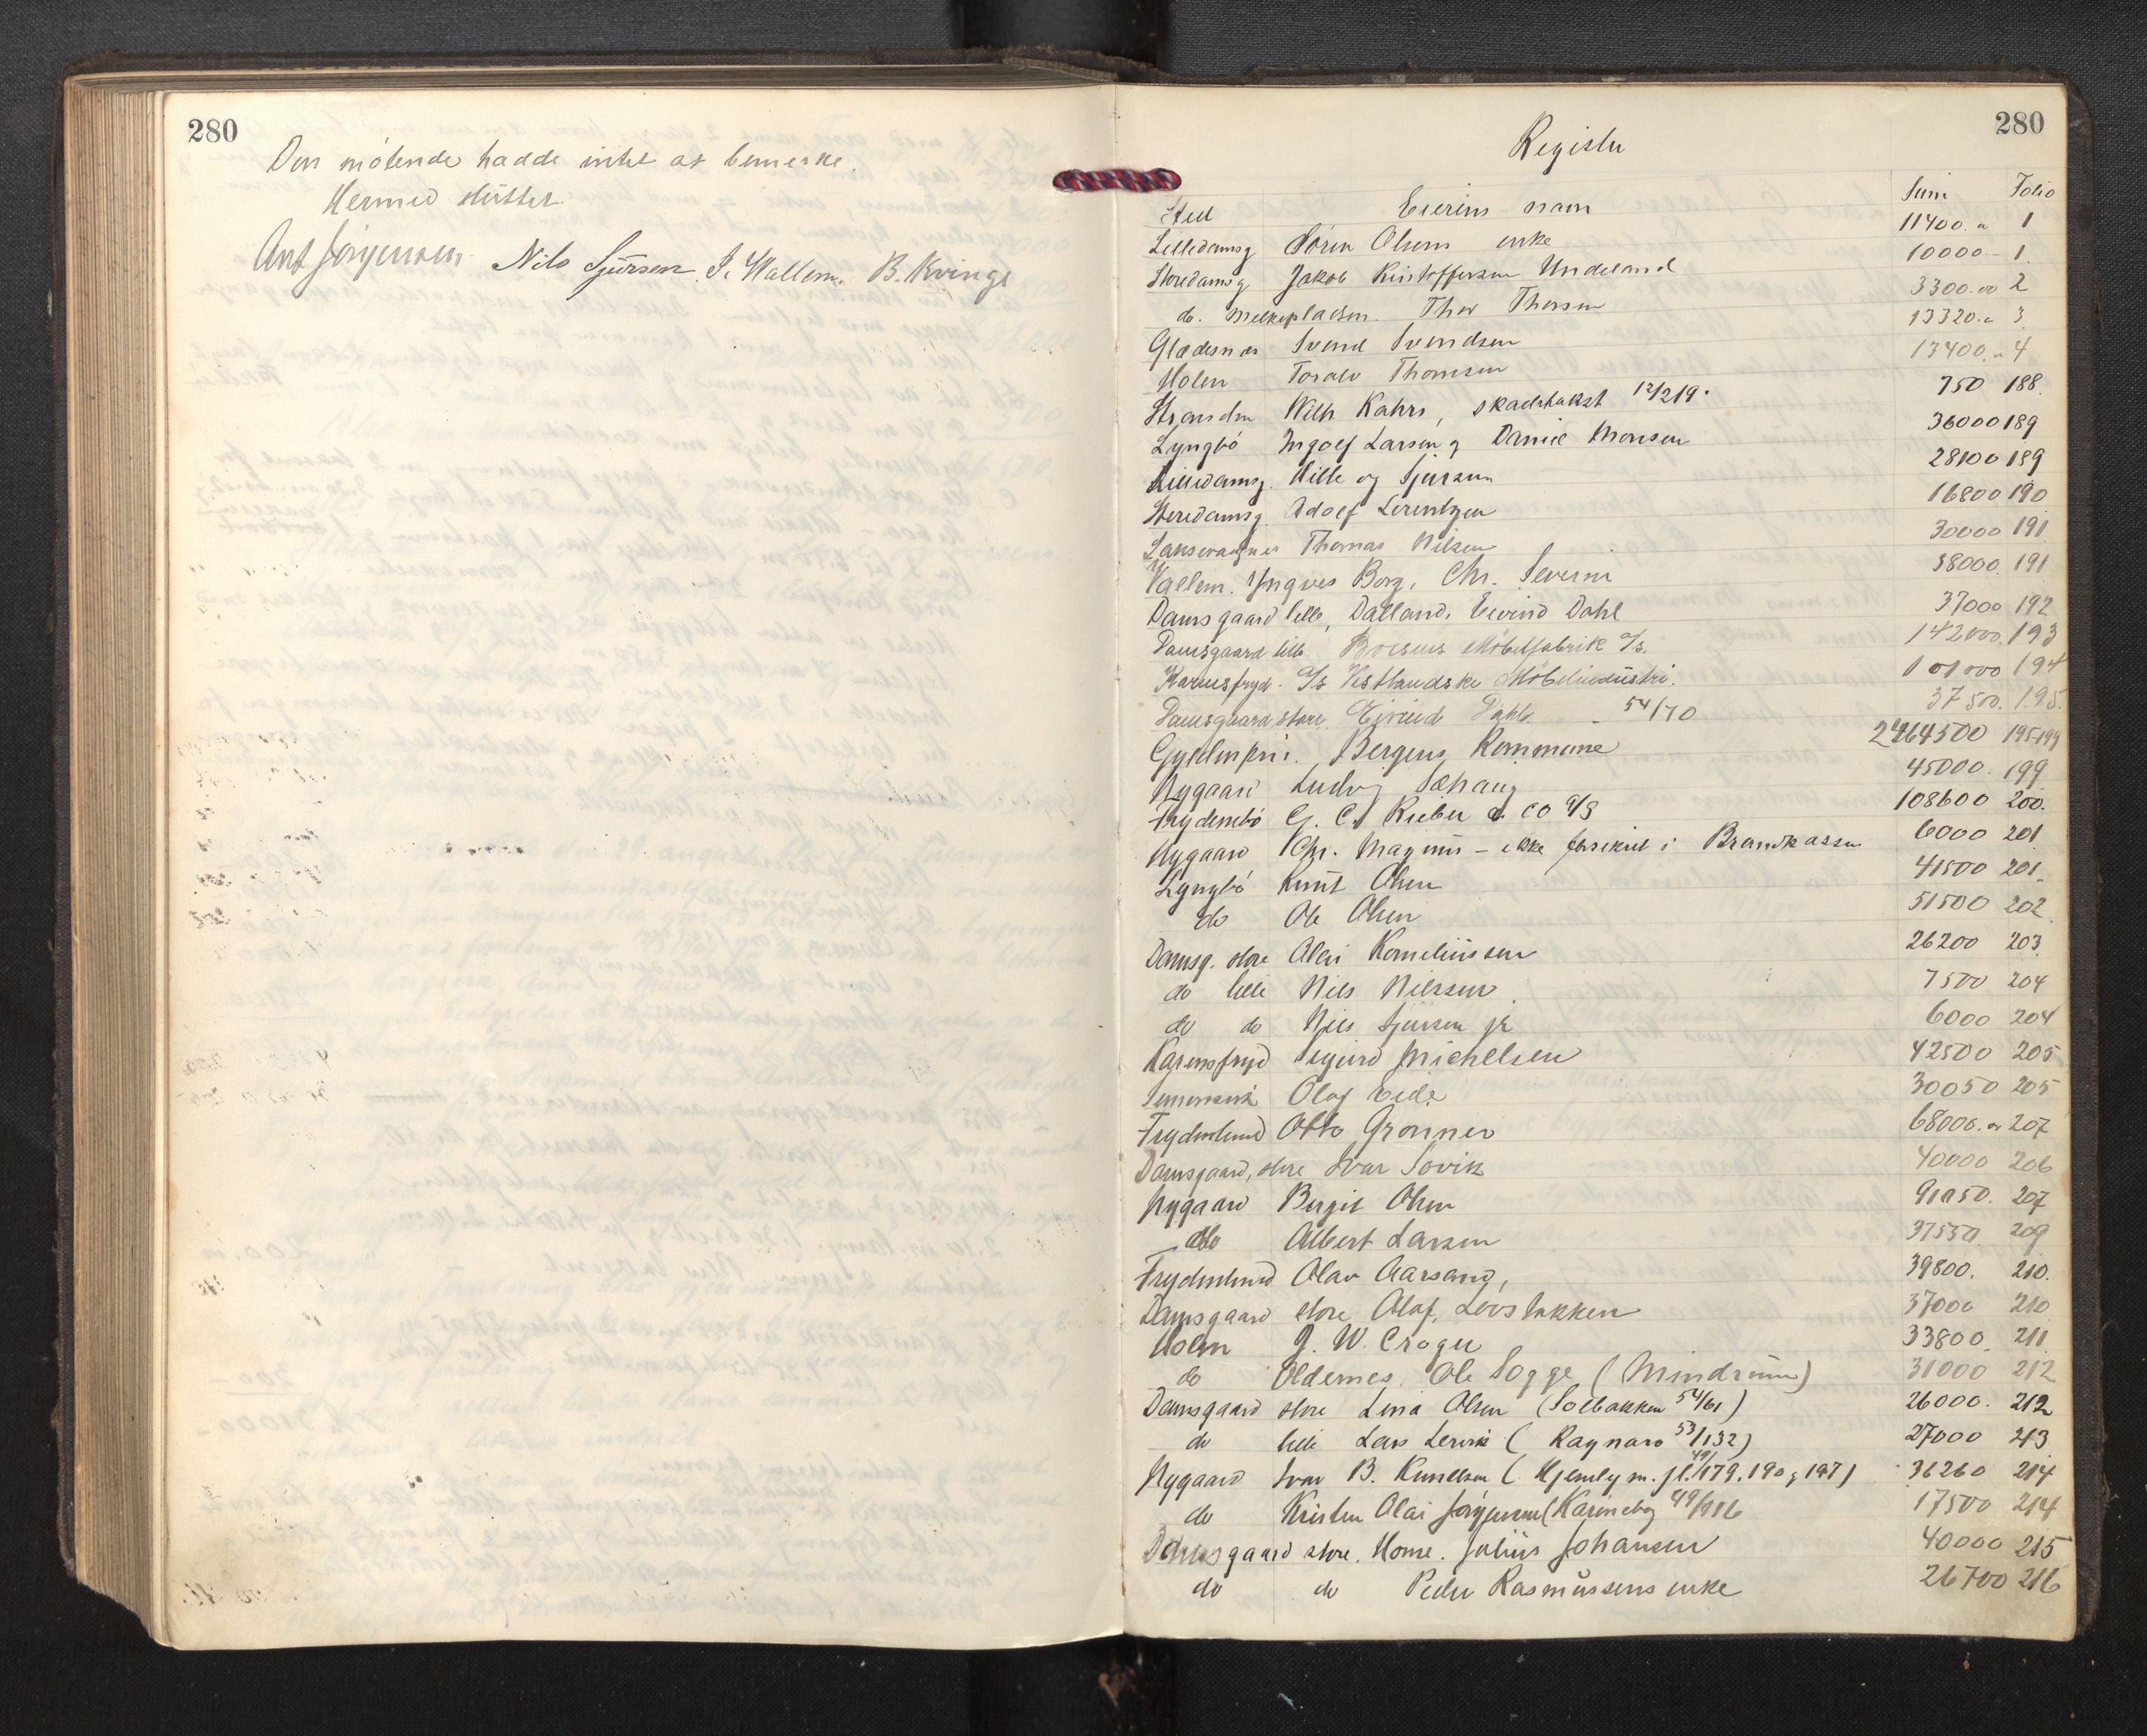 280
Den mötende hadde intet at bemerke.
Hermed sluttet.
Ant Jörgensen Nils Sjursen I. Wallem. B. Kvinge
280
Register
Sted Eierens navn Sum Folio
Lilledamsg Sören Olsens enke 11400. 1
Storedamsg Jakob Kristoffersen Undeland 10000 - 1
do. Melkepladsen. Thor Thorsen 3300.00 2
Gladesnes Svend Svendsen 13320. 3
Holen Toralv Thomsen 13400. 4
Stranden Wilh Kahrs, skadetakst 12/2 19. 750 188
Lyngbö Ingolf Larsen og Daniel Monsen 36000 189
Lilledamsg. Wille og Sjursen 28100 189
Storedamsg. Adolf Lorentzen 16800 190
Laksevaagnes Thomas Nilsen 30000 191
Vallem. Yngves Borg, Chr. Severin 38000. 191
Damsgaard lille, Dalland, Eivind Dahl 37000 192
Damsgaard lille Boesens Möbelfabrik A/s 142000. 193
Karensfryd. A/s Vestlandske Möbelindustri. 101000 194
Damsgaard store Eivind Dahl - 54/70 37500. 195.
Gyldenpris. Bergens Kommune 2464500 195-199
Nygaard Ludvig Sæhaug 45000. 199
Frydenbö G. C. Rieber & Co A/S 108600 200.
Nygaard Chr. Magnus - ikke forsikret i Brandkassen 6000 201
Lyngbö Knut Olsen 41500 201.
do Ole Olsen 51500 202
Damsg. store Olai Korneliussen 26200 203.
do lille Nils Nilssen 7500 204
do do Nils Sjursen jr 6000 204
Karensfryd Sigurd Michelsen 42500 205
Olaf Eide 30050 205
Frydenlund Otto Grønner 68000.00 207
Damsgaard, store Ivar Sovik 40000 206
Nygaard Bergit Olsen 91050. 207
do Albert Larsen 37550 209
Frydenlund Olav Aarsand, 39800. 210.
Damsgaard store Olaf Lövstakken 37000 210
Holen J. W. Croger 33800. 211
do Oldernes. Ole Sogge (Mindrum) 31000 212
Damsgaard store Lina Olsen (Solbakken 54/61) 26000. 212
do lille Lars Lervik (Ragnaro 53/132) 27000 213
Nygaard Ivar B. Knudsen (Hjemly m. fl. 49/179, 190 og 197) 36260 214
do Kristen Olai Jörgensen (Karinebo 49/916 17500 214
Damsgaard store. Home. Julius Johansen 40000 215
do do Peder Rasmussens enke 26700 216